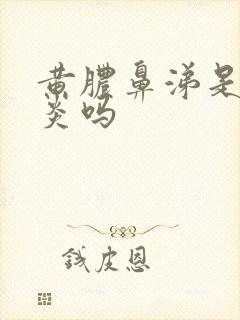 黄脓鼻涕是
炎吗
钱皮恩